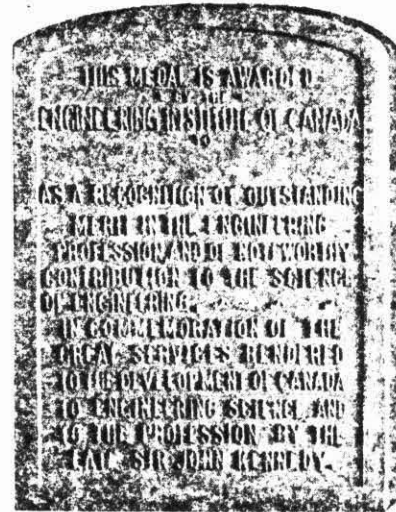 THIS MEDAL IS AWARDED
BY THE
ENGINEERING INSTITUTE OF CANADA
TO
AS A RECOGNITION OF OUTSTANDING
MERIT IN THE ENGINEERING
PROFESSION AND OF NOTEWORTHY
CONTRIBUTION TO THE SCIENCE
OF ENGINEERING.
IN COMMEMORATION OF THE
GREAT SERVICES RENDERED
TO THE DEVELOPMENT OF CANADA
TO ENGINEERING SCIENCE AND
TO THE PROFESSION BY THE
LATE SIR JOHN KENNEDY.